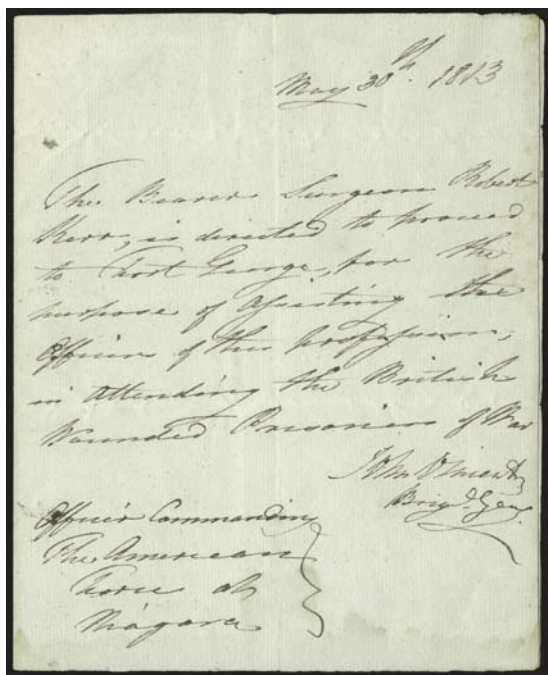 May 30th. 1813
The Bearer Surgeon Robert
Kerr, is directed to proceed
to Fort George, for the
purpose of Assisting the
Officer of the profession,
in Attending the British
Wounded Prisoners of War
John Vincent
Brigd. Genl.
Officer Commanding
The American
Force at
Niagara